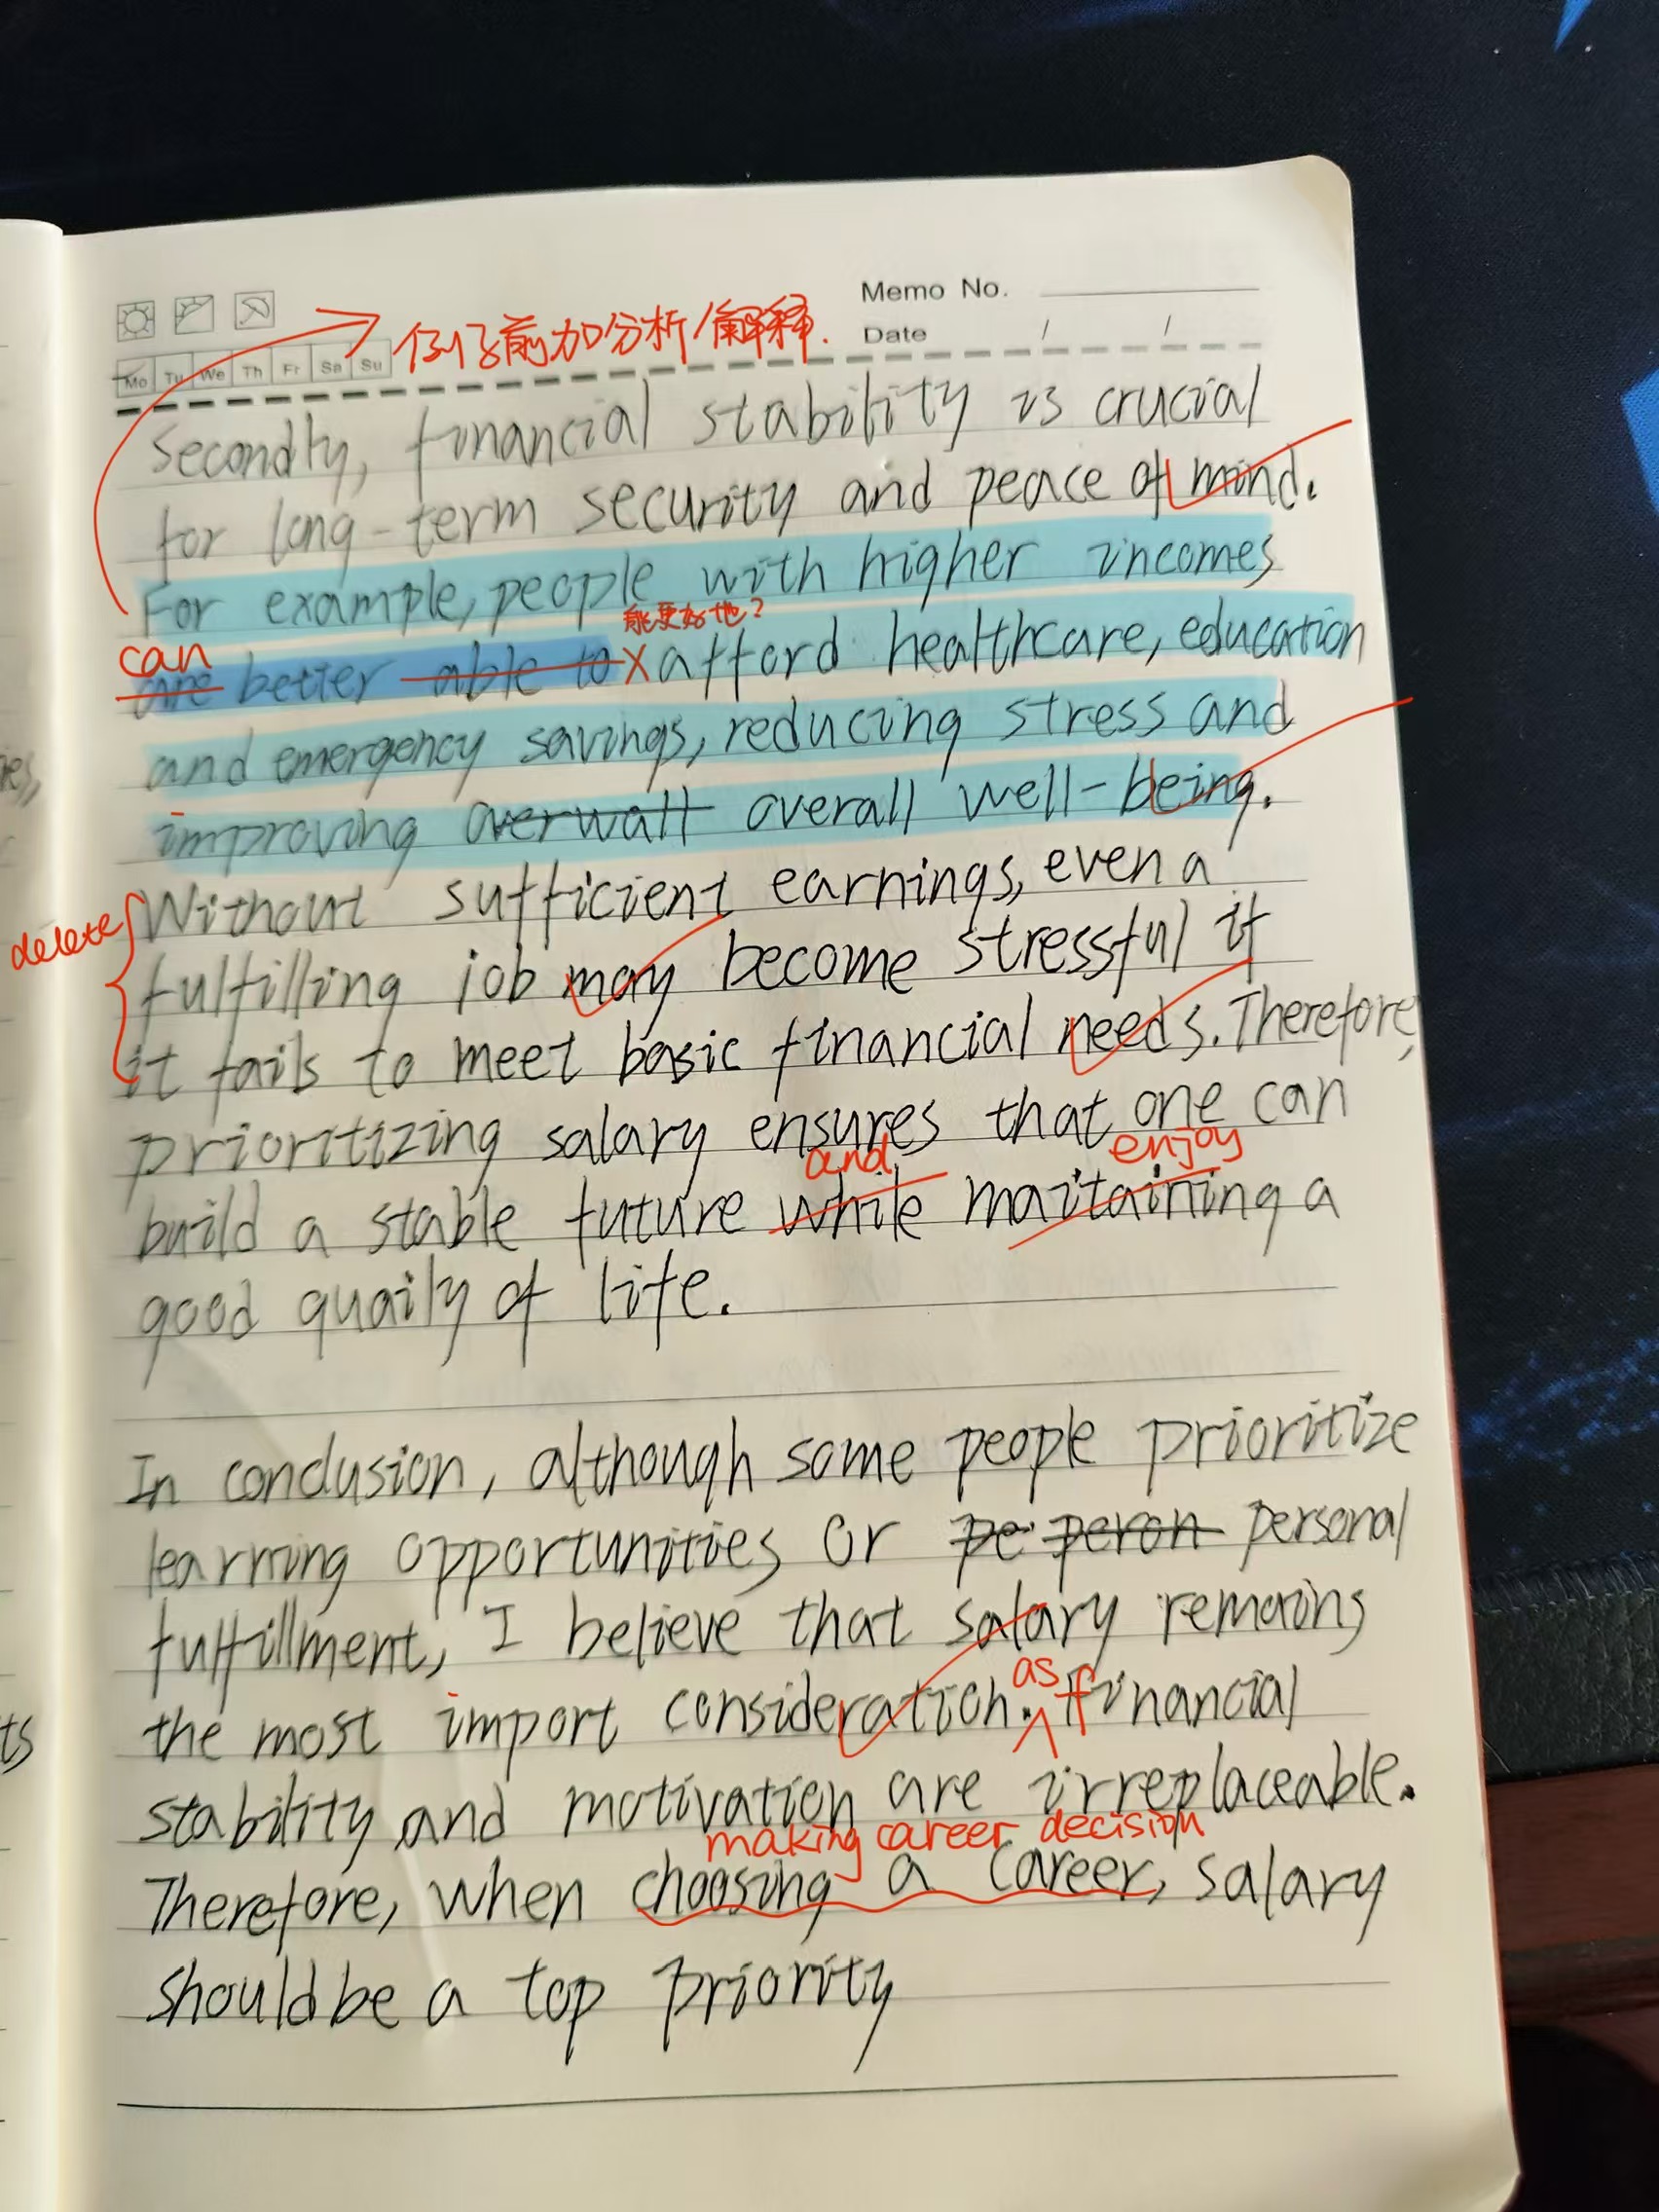 Memo No.
Date / /
Mo Tu We Th Fr Sa Su
例子前加分析/解释.
Secondly, financial stability is crucial
for long-term security and peace of mind.
For example, people with higher incomes
能更好地?
can
are better able to X afford healthcare, education
and emergency savings, reducing stress and
improving overwall overall well-being.
delete
Without sufficient earnings, even a
fulfilling job may become stressful if
it fails to meet basic financial needs. Therefore,
prioritizing salary ensures that one can
and enjoy
build a stable future while maitaining a
good quaily of life.
In conclusion, although some people prioritize
learning opportunities or pe peron personal
fulfillment, I believe that salary remains
as f
the most import consideration. Financial
stability and motivation are irreplaceable.
making career decision
Therefore, when choosing a career, salary
should be a top priority
ts